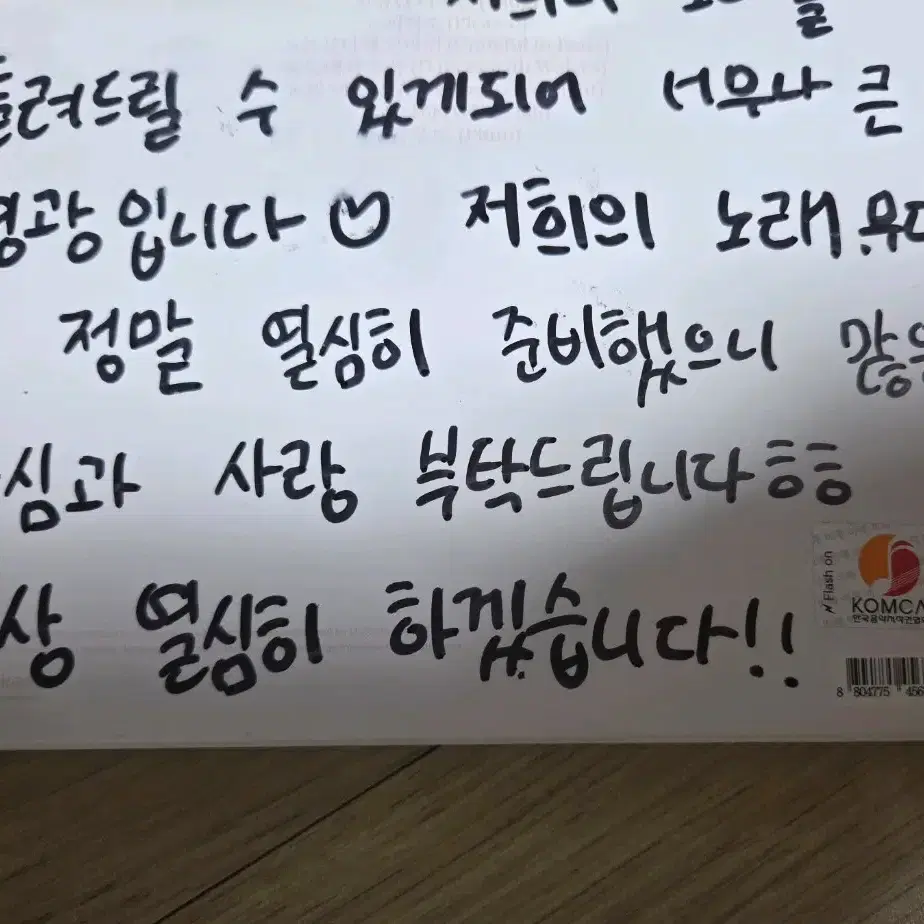 들려드릴 수 있게되어 너무나 큰
영광입니다 저희의 노래
정말 열심히 준비했으니 많은
심과 사랑 부탁드립니다ㅎㅎ
상 열심히 하겠습니다!!
Flash on
KOMCA
한국음악저작권협회
8 804775 456